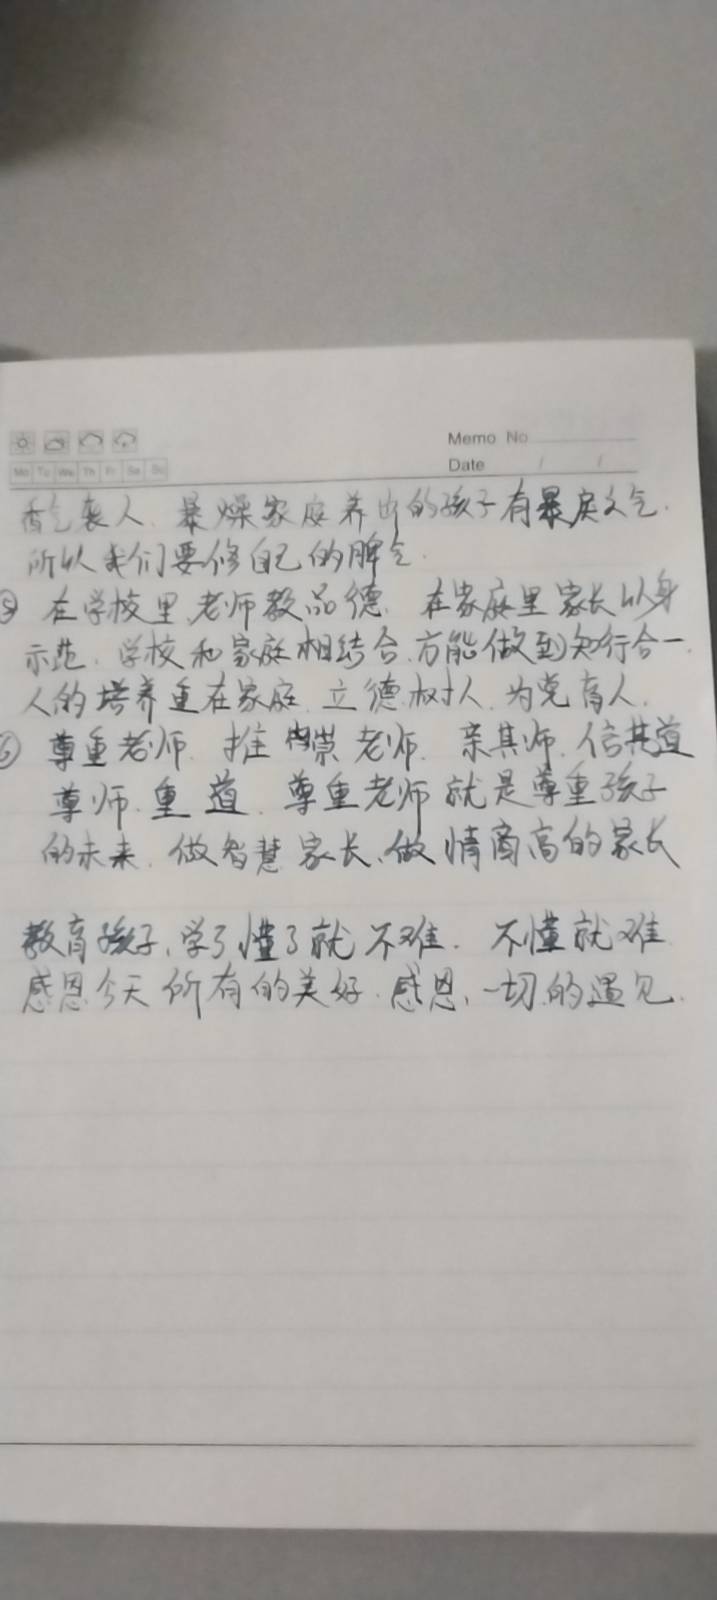 Memo No
Date / /
Mo Tu We Th Fr Sa Su
香气袭人. 暴燥家庭养出的孩子有暴戾之气.
所以我们要修自己的脾气.
⑤ 在学校里, 老师教品德. 在家庭里家长以身
示范. 学校和家庭相结合, 方能做到知行合一.
人的培养重在家庭. 立德树人. 为党育人.
⑥ 尊重老师. 推崇老师. 亲其师. 信其道
尊师.重道. 尊重老师就是尊重孩子
的未来. 做智慧家长、做情商高的家长
教育孩子、学了懂了就不难. 不懂就难
感恩今天所有的美好. 感恩、一切的遇见.